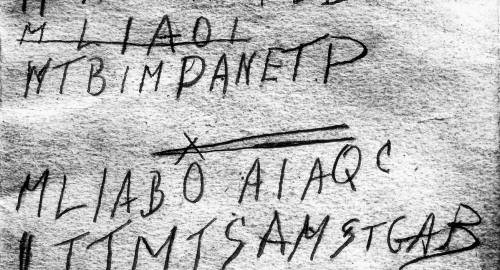 MLIAOI
WTBIMPANETP
MLIABO AIAQC
ITTMTSAMSTGAB